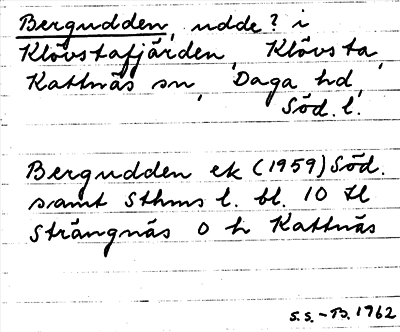 Bergudden, udde? i
Klövstafjärden, Klövsta,
Kattnäs sn, Daga hd,
Söd. l.
Bergudden ek (1959) Söd.
samt Sthms l. bl. 10 II
Strängnäs O h Kattnäs
S.S.-B. 1962